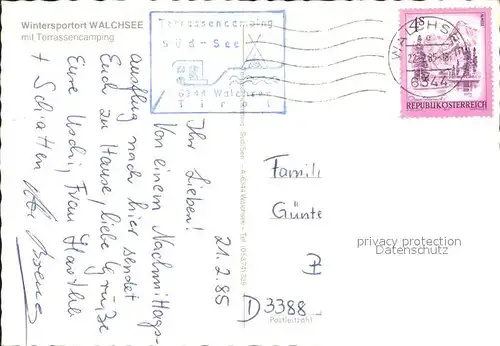 Wintersportort WALCHSEE
mit Terrassencamping
Terrassencamping
Süd-See
6344 Walchsee
Tirol
WALCHSEE
22.2.85-18
6344
4S
REPUBLIK ÖSTERREICH
21.2.85
Ihr Lieben!
Von einem Nachmittags-
ausflug nach hier sendet
Euch zu Hause, liebe Grüße
Eure Uschi, Frau
+
Süd-See - A-6344 Walchsee
Famili
Günte
P
D 3388
Postleitzahl
privacy protection
Datenschutz